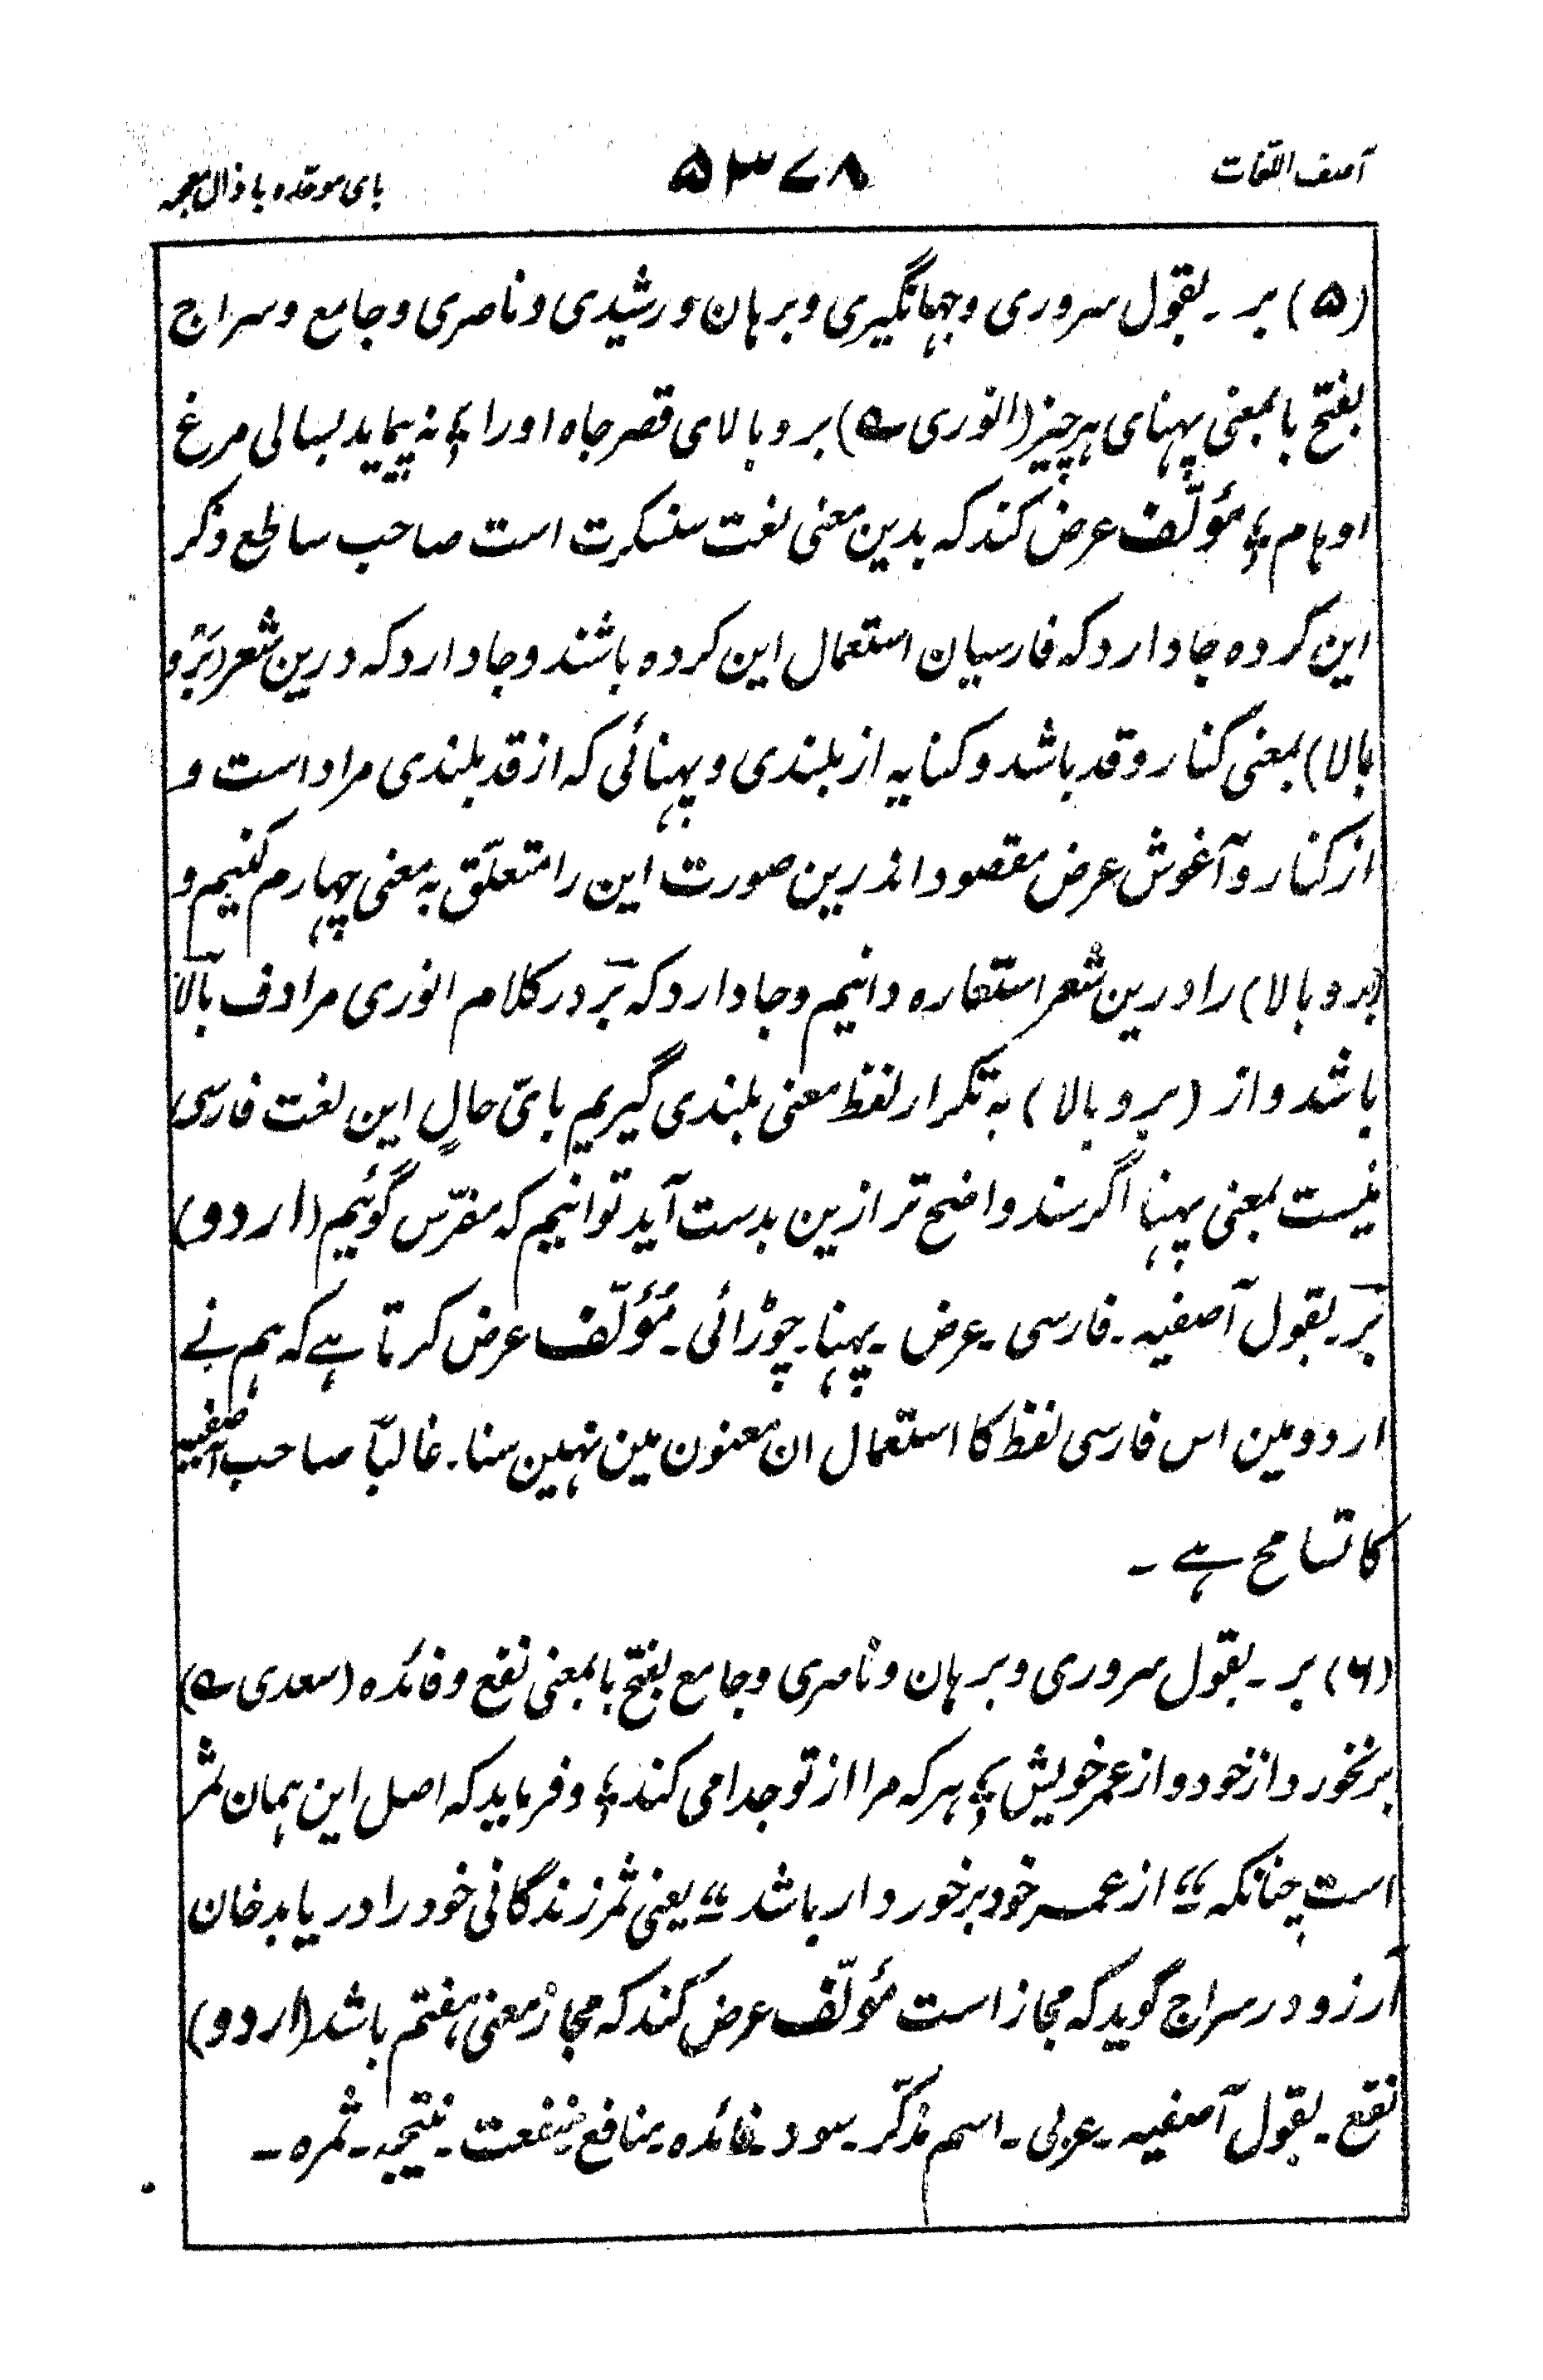 آصف اللغات
۵۳۷۸
بای موحّده با ذال معجمہ
(۵) بر ۔ بقول سروری و جہانگیری و برہان و رشیدی و ناصری و جامع و سراج
بفتح با بمعنی پہنای ہر چیز (انوری ے) بر و بالای قصر جاہ او را ؛ نہ پیماید بسالی مرغ
اوہام ؛ مؤلّف عرض کند کہ بدین معنی لغت سنسکرت است صاحب ساطع ذکر
این کردہ جا دارد کہ فارسیان استعمال این کردہ باشند و جا دارد کہ درین شعر (بَر و
بالا) بمعنی کنار و قد باشد و کنایہ از بلندی و پہنائی کہ از قد بلندی مراد است و
از کنار و آغوش عرض مقصود اندرین صورت این را متعلّق بہ معنی چہارم کنیم و
(بر و بالا) را درین شعر استعارہ دانیم و جا دارد کہ بَر در کلام انوری مرادف بالا
باشد و از (بر و بالا) بہ تکرار لفظ معنی بلندی گیریم بایّ حالٍ این لغت فارسی
نیست بمعنی پہنا اگر سند واضح تر ازین بدست آید توانیم کہ مفرّس گوئیم (اردو)
بَر ۔ بقول آصفیہ ۔ فارسی ۔ عرض ۔ پہنا ۔ چوڑائی ۔ مؤلّف عرض کرتا ہے کہ ہم نے
اردو مین اس فارسی لفظ کا استعمال ان معنون مین نہین سنا ۔ غالباً صاحب آصفیہ
کا تسامح ہے ۔
(۶) بر ۔ بقول سروری و برہان و ناصری و جامع بفتح با بمعنی نفع و فائدہ (سعدی ے)
بر نخورد از خود و از عمر خویش ؛ ہر کہ مرا از تو جدا می کند ؛ و فرماید کہ اصل این ہمان ثمر
است چنانکہ “ از عمر خود برخوردار باشد “ یعنی ثمر زندگانی خود را دریابد خان
آرزو در سراج گوید کہ مجاز است مؤلّف عرض کند کہ مجاز معنی ہفتم باشد (اردو)
نفع ۔ بقول آصفیہ ۔ عربی ۔ اسم مذکّر ۔ سود ۔ فائدہ ۔ منافع ۔ منفعت ۔ نتیجہ ۔ ثمرہ ۔